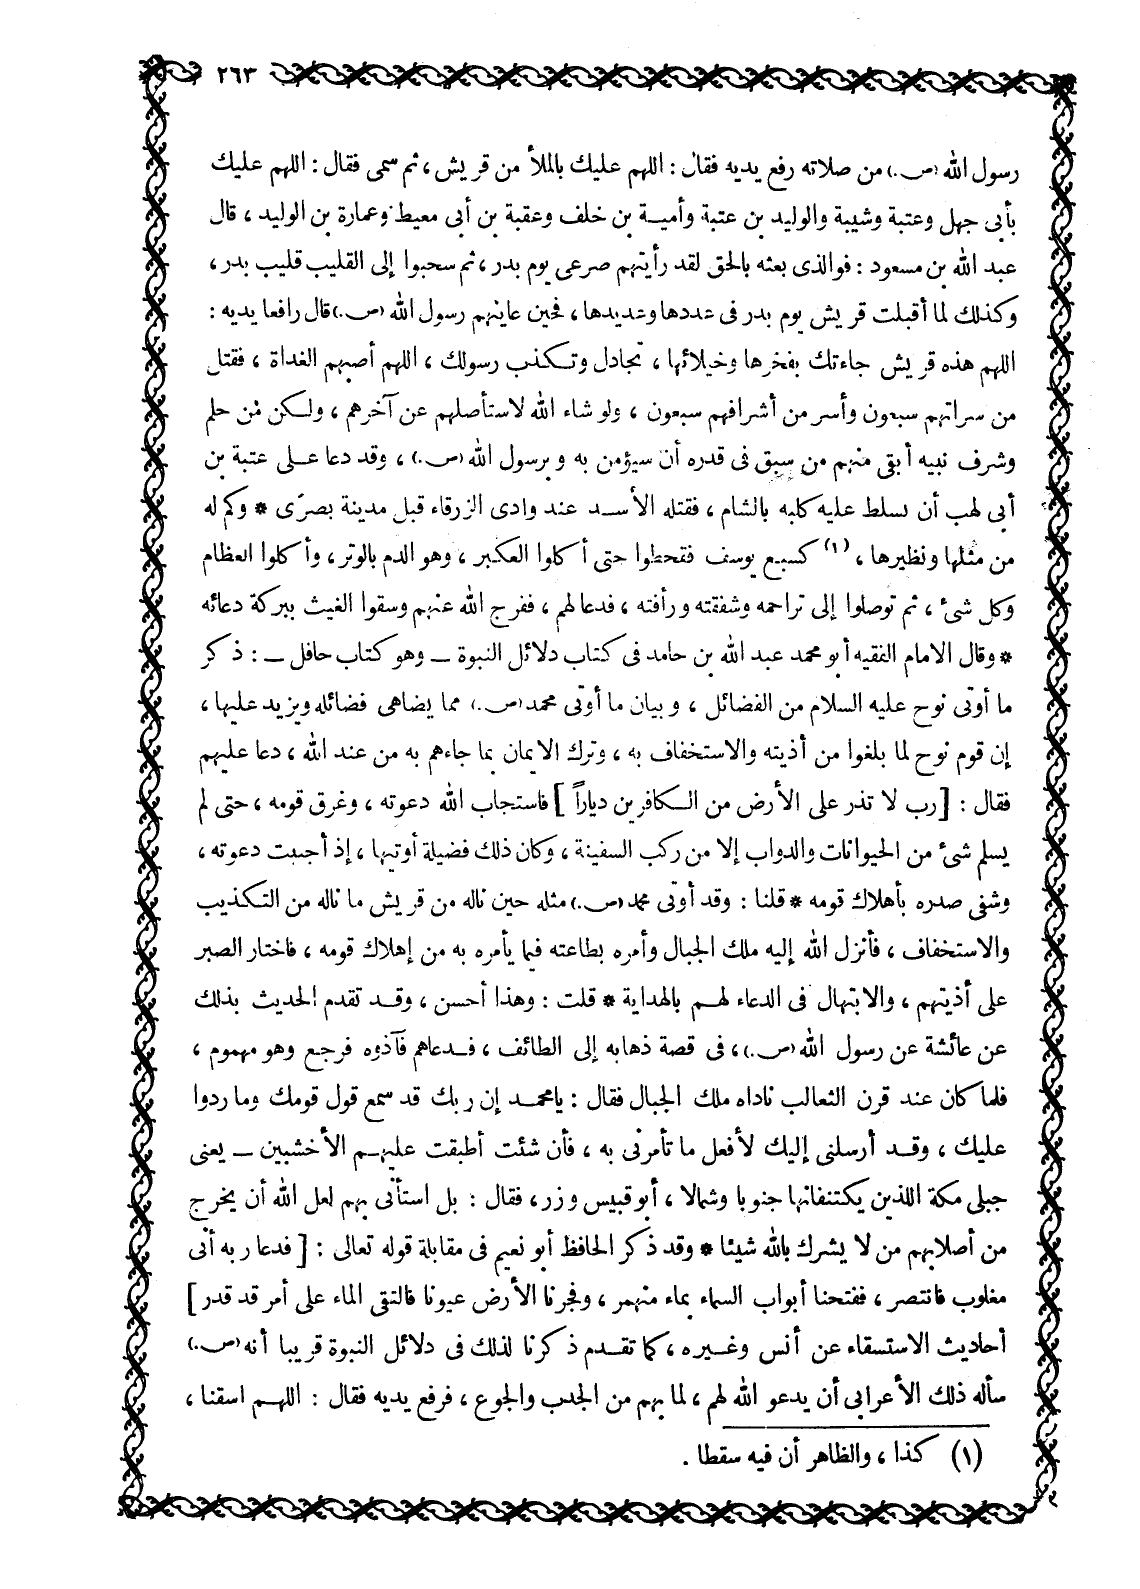 ٢٦٣
رسول الله (ص.) من صلاته رفع يديه فقال : اللهم عليك بالملأ من قريش ، ثم سمى فقال : اللهم عليك
بأبى جهل وعتبة وشيبة والوليد بن عتبة وأمية بن خلف وعقبة بن أبى معيط وعمارة بن الوليد ، قال
عبد الله بن مسعود : فوالذى بعثه بالحق لقد رأيتهم صرعى يوم بدر ، ثم سحبوا إلى القليب قليب بدر ،
وكذلك لما أقبلت قريش يوم بدر فى عددها وعديدها ، فحين عاينهم رسول الله (ص.) قال رافعا يديه :
اللهم هذه قريش جاءتك بفخرها وخيلائها ، تجادل وتكذب رسولك ، اللهم أصبهم الغداة ، فقتل
من سراتهم سبعون وأسر من أشرافهم سبعون ، ولو شاء الله لاستأصلهم عن آخرهم ، ولكن مْن حلم
وشرف نبيه أبقى منهم من سبق فى قدره أن سيؤمن به وبرسول الله (ص.) ، وقد دعا على عتبة بن
أبى لهب أن يسلط عليه كلبه بالشام ، فقتله الأسد عند وادى الزرقاء قبل مدينة بصرَى * وكم له
من مثلها ونظيرها ، (١) كسبع يوسف فقحطوا حتى أكلوا العكبر ، وهو الدم بالوتر ، وأكلوا العظام
وكل شئ ، ثم توصلوا إلى تراحمه وشفقته ورأفته ، فدعا لهم ، ففرج الله عنهم وسقوا الغيث ببركة دعائه
* وقال الامام الفقيه أبو محمد عبد الله بن حامد فى كتاب دلائل النبوة ــ وهو كتاب حافل ــ : ذكر
ما أوتى نوح عليه السلام من الفضائل ، وبيان ما أوتى محمد (ص.) مما يضاهى فضائله ويزيد عليها ،
إن قوم نوح لما بلغوا من أذيته والاستخفاف به ، وترك الايمان بما جاءهم به من عند الله ، دعا عليهم
فقال : [ رب لا تذر على الأرض من الكافرين دياراً ] فاستجاب الله دعوته ، وغرق قومه ، حتى لم
يسلم شئ من الحيوانات والدواب إلا من ركب السفينة ، وكان ذلك فضيلة أوتيها ، إذ أجيبت دعوته ،
وشفى صدره بأهلاك قومه * قلنا : وقد أوتى محمد (ص.) مثله حين ناله من قريش ما ناله من التكذيب
والاستخفاف ، فأنزل الله إليه ملك الجبال وأمره بطاعته فيما يأمره به من إهلاك قومه ، فاختار الصبر
على أذيتهم ، والابتهال فى الدعاء لهم بالهداية * قلت : وهذا أحسن ، وقد تقدم الحديث بذلك
عن عائشة عن رسول الله (ص.) ، فى قصة ذهابه إلى الطائف ، فدعاهم فآذوه فرجع وهو مهموم ،
فلما كان عند قرن الثعالب ناداه ملك الجبال فقال : يا محمد إن ربك قد سمع قول قومك وما ردوا
عليك ، وقد أرسلنى إليك لأفعل ما تأمرنى به ، فأن شئت أطبقت عليهم الأخشبين ــ يعنى
جبلى مكة اللذين يكتنفانها جنوبا وشمالا ، أبو قبيس وزر ، فقال : بل استأنى بهم لعل الله أن يخرج
من أصلابهم من لا يشرك بالله شيئا * وقد ذكر الحافظ أبو نعيم فى مقابلة قوله تعالى : [ فدعا ربه أنى
مغلوب فانتصر ، ففتحنا أبواب السماء بماء منهمر ، وفجرنا الأرض عيونا فالتقى الماء على أمر قد قدر ]
أحاديث الاستسقاء عن أنس وغيره ، كما تقدم ذكرنا لذلك فى دلائل النبوة قريبا أنه (ص.)
سأله ذلك الأعرابى أن يدعو الله لهم ، لما بهم من الجدب والجوع ، فرفع يديه فقال : اللهم اسقنا ،
(١) كذا ، والظاهر أن فيه سقطا .